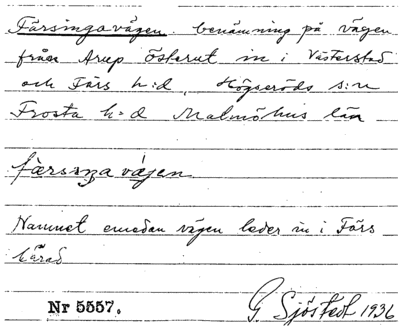 Färsingavägen. benämning på vägen
från Arup österut in i Västerstad
och Färs h:d, Högseröds s:n
Frosta h:d Malmöhus län
färsıŋa vägen
Namnet emedan vägen leder in i Färs
härad
Nr 5557.
G. Sjöstedt 1936